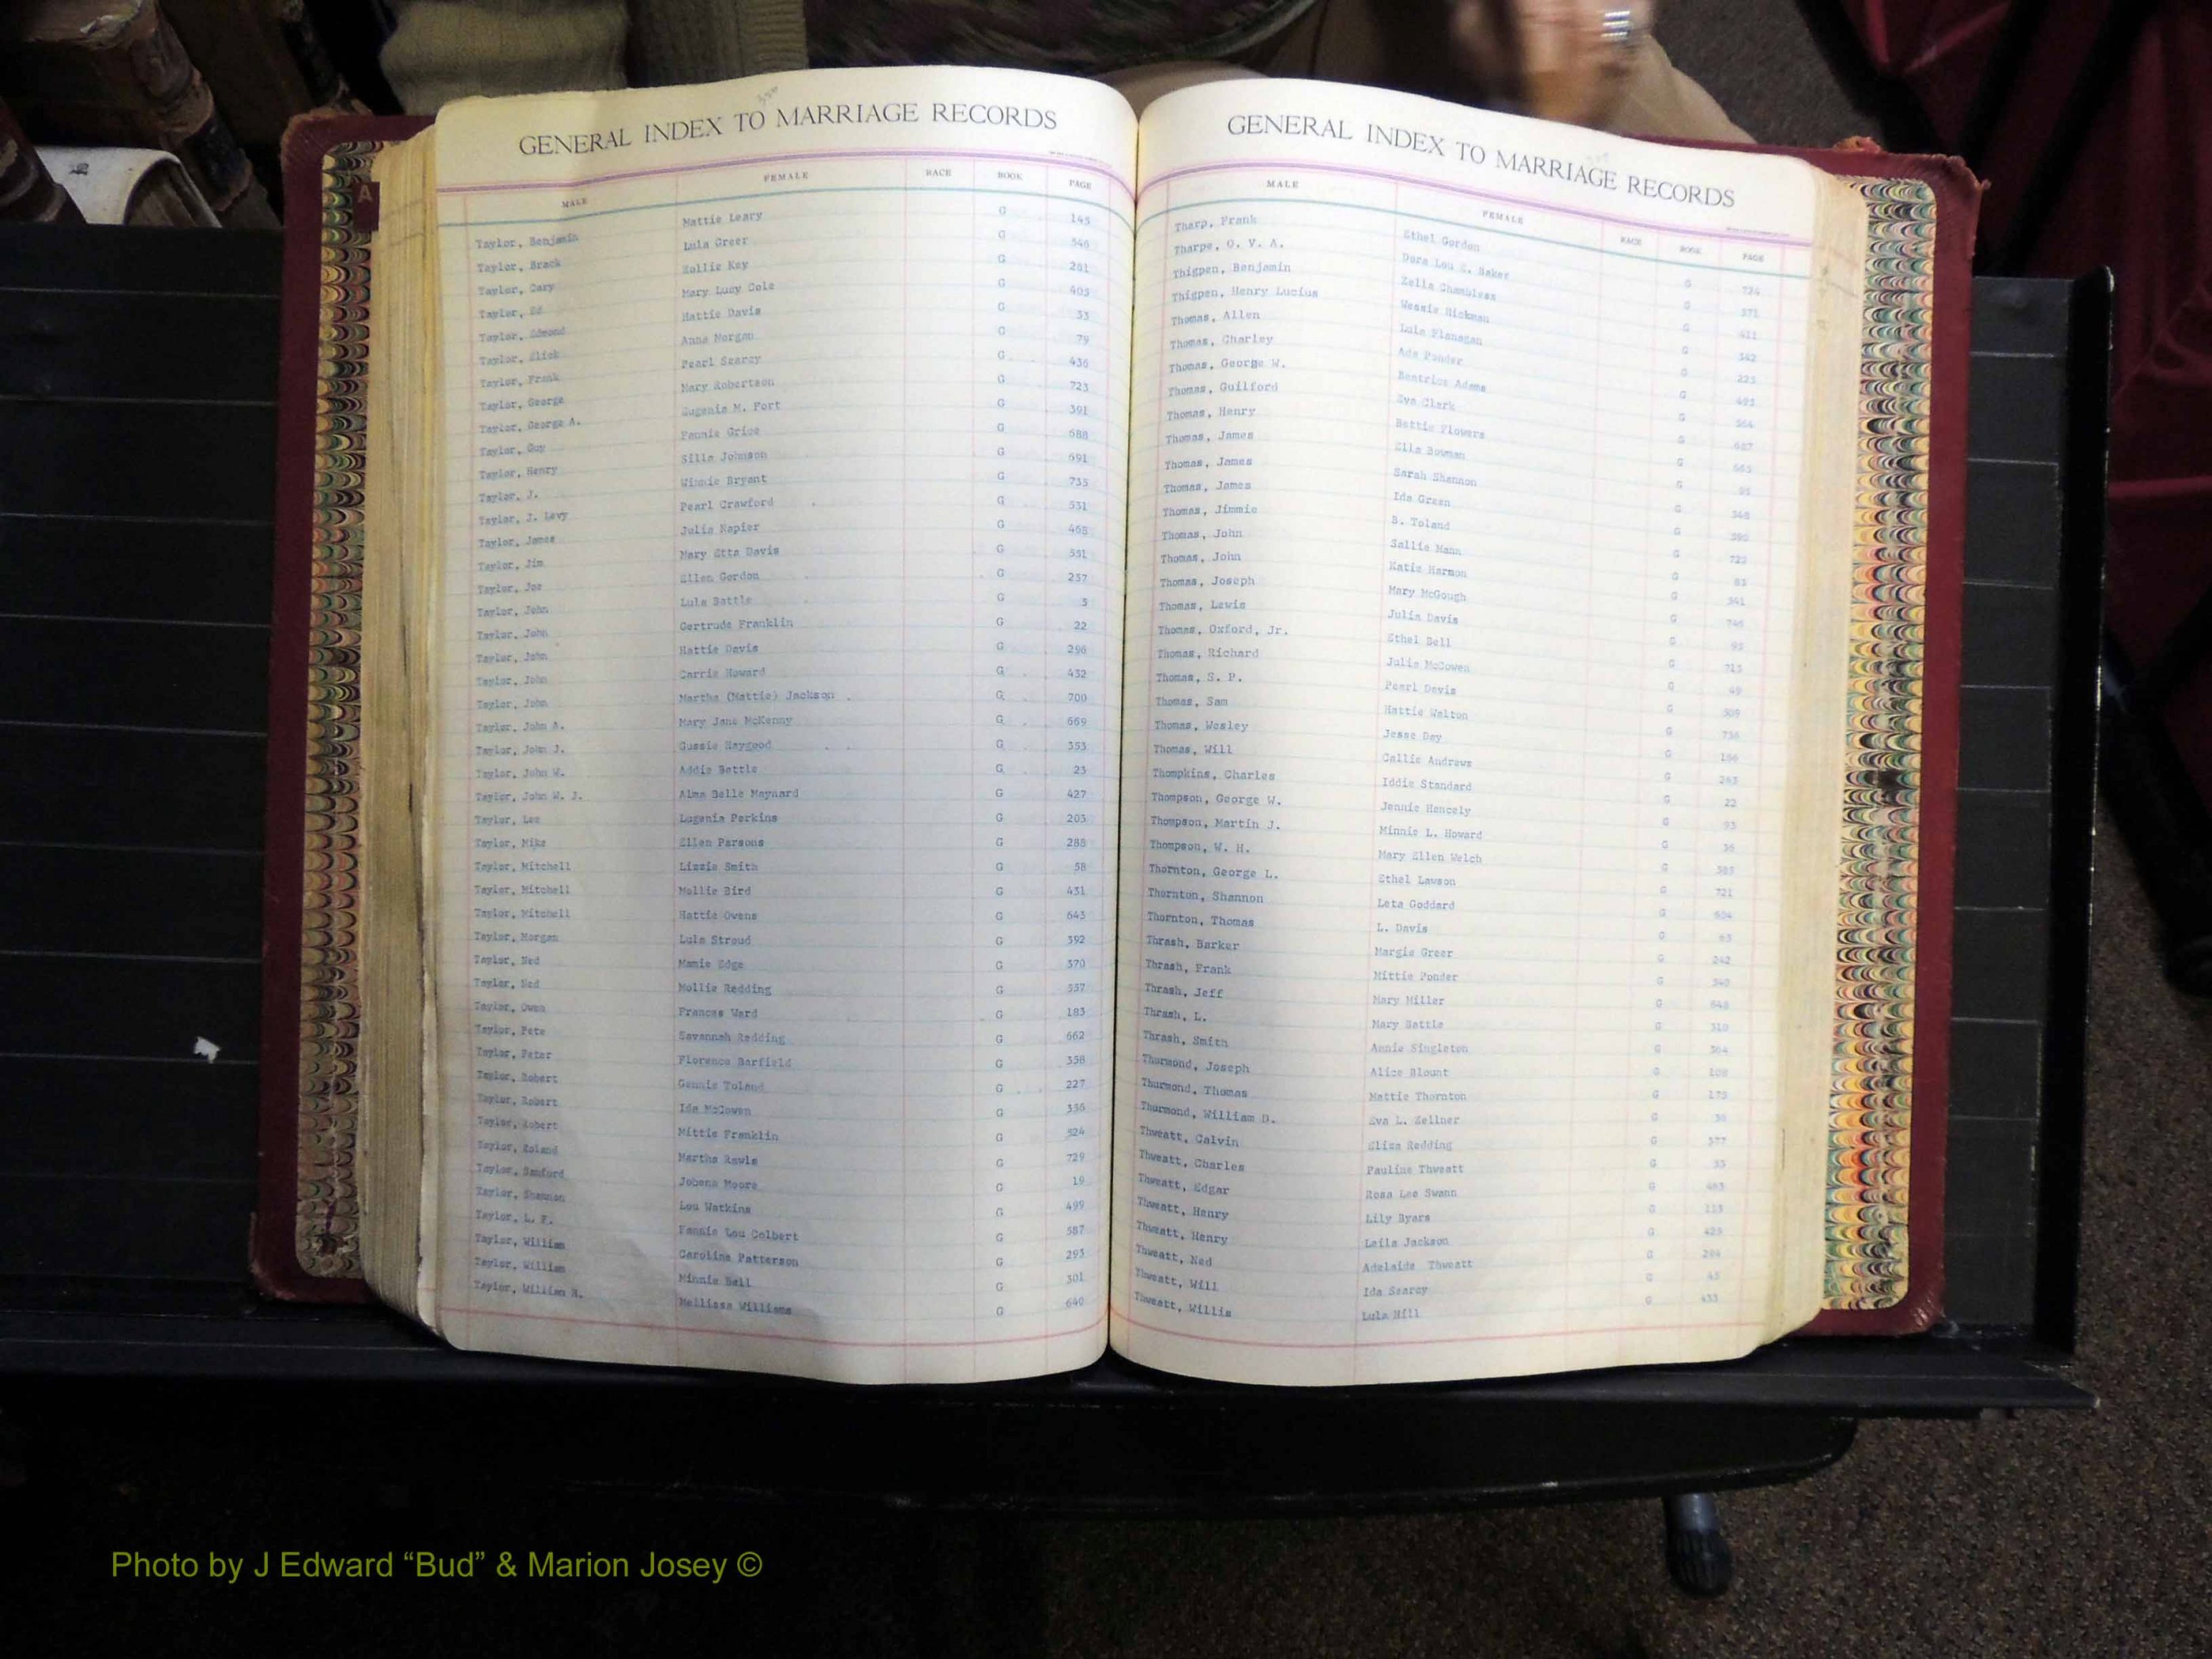 GENERAL INDEX TO MARRIAGE RECORDS
MALE FEMALE RACE BOOK PAGE
Taylor, Benjamin Mattie Leary G 145
Taylor, Brack Lula Greer G 546
Taylor, Cary Zollie Key G 281
Taylor, Ed Mary Lucy Cole G 405
Taylor, Edmond Hattie Davis G 33
Taylor, Elick Anna Morgan G 79
Taylor, Frank Pearl Searcy G 436
Taylor, George Mary Robertson G 723
Taylor, George A. Eugenia M. Fort G 391
Taylor, Guy Fannie Grice G 688
Taylor, Henry Silla Johnson G 691
Taylor, J. Winnie Bryant G 735
Taylor, J. Levy Pearl Crawford G 531
Taylor, James Julia Napier G 468
Taylor, Jim Mary Etta Davis G 551
Taylor, Joe Ellen Gordon G 257
Taylor, John Lula Battle G 5
Taylor, John Gertrude Franklin G 22
Taylor, John Hattie Davis G 296
Taylor, John Carrie Howard G 432
Taylor, John Martha (Mattie) Jackson G 700
Taylor, John A. Mary Jane McKenny G 669
Taylor, John J. Gussie Haygood G 353
Taylor, John W. Addie Battle G 23
Taylor, John W. J. Alma Belle Maynard G 427
Taylor, Lee Lugenia Perkins G 203
Taylor, Mike Ellen Parsons G 288
Taylor, Mitchell Lizzie Smith G 58
Taylor, Mitchell Mollie Bird G 431
Taylor, Mitchell Hattie Owens G 643
Taylor, Morgan Lula Stroud G 392
Taylor, Ned Mamie Edge G 370
Taylor, Ned Mollie Redding G 557
Taylor, Owen Frances Ward G 183
Taylor, Pete Savannah Redding G 662
Taylor, Peter Florence Barfield G 358
Taylor, Robert Gennie Toland G 227
Taylor, Robert Ida McCowen G 336
Taylor, Robert Mittie Franklin G 524
Taylor, Roland Martha Rawls G 729
Taylor, Sanford Jobena Moore G 19
Taylor, Shannon Lou Watkins G 499
Taylor, L. F. Fannie Lou Colbert G 587
Taylor, William Caroline Patterson G 293
Taylor, William Minnie Bell G 301
Taylor, William H. Mellissa Williams G 640
GENERAL INDEX TO MARRIAGE RECORDS
MALE FEMALE RACE BOOK PAGE
Tharp, Frank Ethel Gordon G 724
Tharpe, O. V. A. Dora Lou E. Baker G 371
Thigpen, Benjamin Zella Chambless G 411
Thigpen, Henry Lucius Wessie Hickman G 342
Thomas, Allen Lula Flanagan G 225
Thomas, Charley Ada Ponder G 493
Thomas, George W. Beatrice Adams G 564
Thomas, Guilford Eva Clark G 687
Thomas, Henry Bettie Flowers G 663
Thomas, James Ella Bowman G 95
Thomas, James Sarah Shannon G 348
Thomas, James Ida Green G 390
Thomas, Jimmie B. Toland G 723
Thomas, John Sallie Mann G 83
Thomas, John Katie Harmon G 341
Thomas, Joseph Mary McGough G 746
Thomas, Lewis Julia Davis G 95
Thomas, Oxford, Jr. Ethel Bell G 715
Thomas, Richard Julia McCowen G 49
Thomas, S. P. Pearl Davis G 509
Thomas, Sam Hattie Walton G 736
Thomas, Wesley Jesse Day G 166
Thomas, Will Callie Andrews G 263
Thompkins, Charles Iddie Standard G 22
Thompson, George W. Jennie Hencely G 93
Thompson, Martin J. Minnie L. Howard G 36
Thompson, W. H. Mary Ellen Welch G 585
Thornton, George L. Ethel Lawson G 721
Thornton, Shannon Leta Goddard G 604
Thornton, Thomas L. Davis G 65
Thrash, Barker Margie Greer G 242
Thrash, Frank Mittie Ponder G 340
Thrash, Jeff Mary Miller G 648
Thrash, L. Mary Battle G 310
Thrash, Smith Annie Singleton G 364
Thurmond, Joseph Alice Blount G 108
Thurmond, Thomas Mattie Thornton G 175
Thurmond, William D. Eva L. Zellner G 36
Thweatt, Calvin Eliza Redding G 377
Thweatt, Charles Pauline Thweatt G 53
Thweatt, Edgar Rosa Lee Swann G 463
Thweatt, Henry Lily Byars G 113
Thweatt, Henry Leila Jackson G 425
Thweatt, Ned Adelaide Thweatt G 294
Thweatt, Will Ida Searcy G 45
Thweatt, Willis Lula Hill G 433
A
Photo by J Edward “Bud” & Marion Josey ©